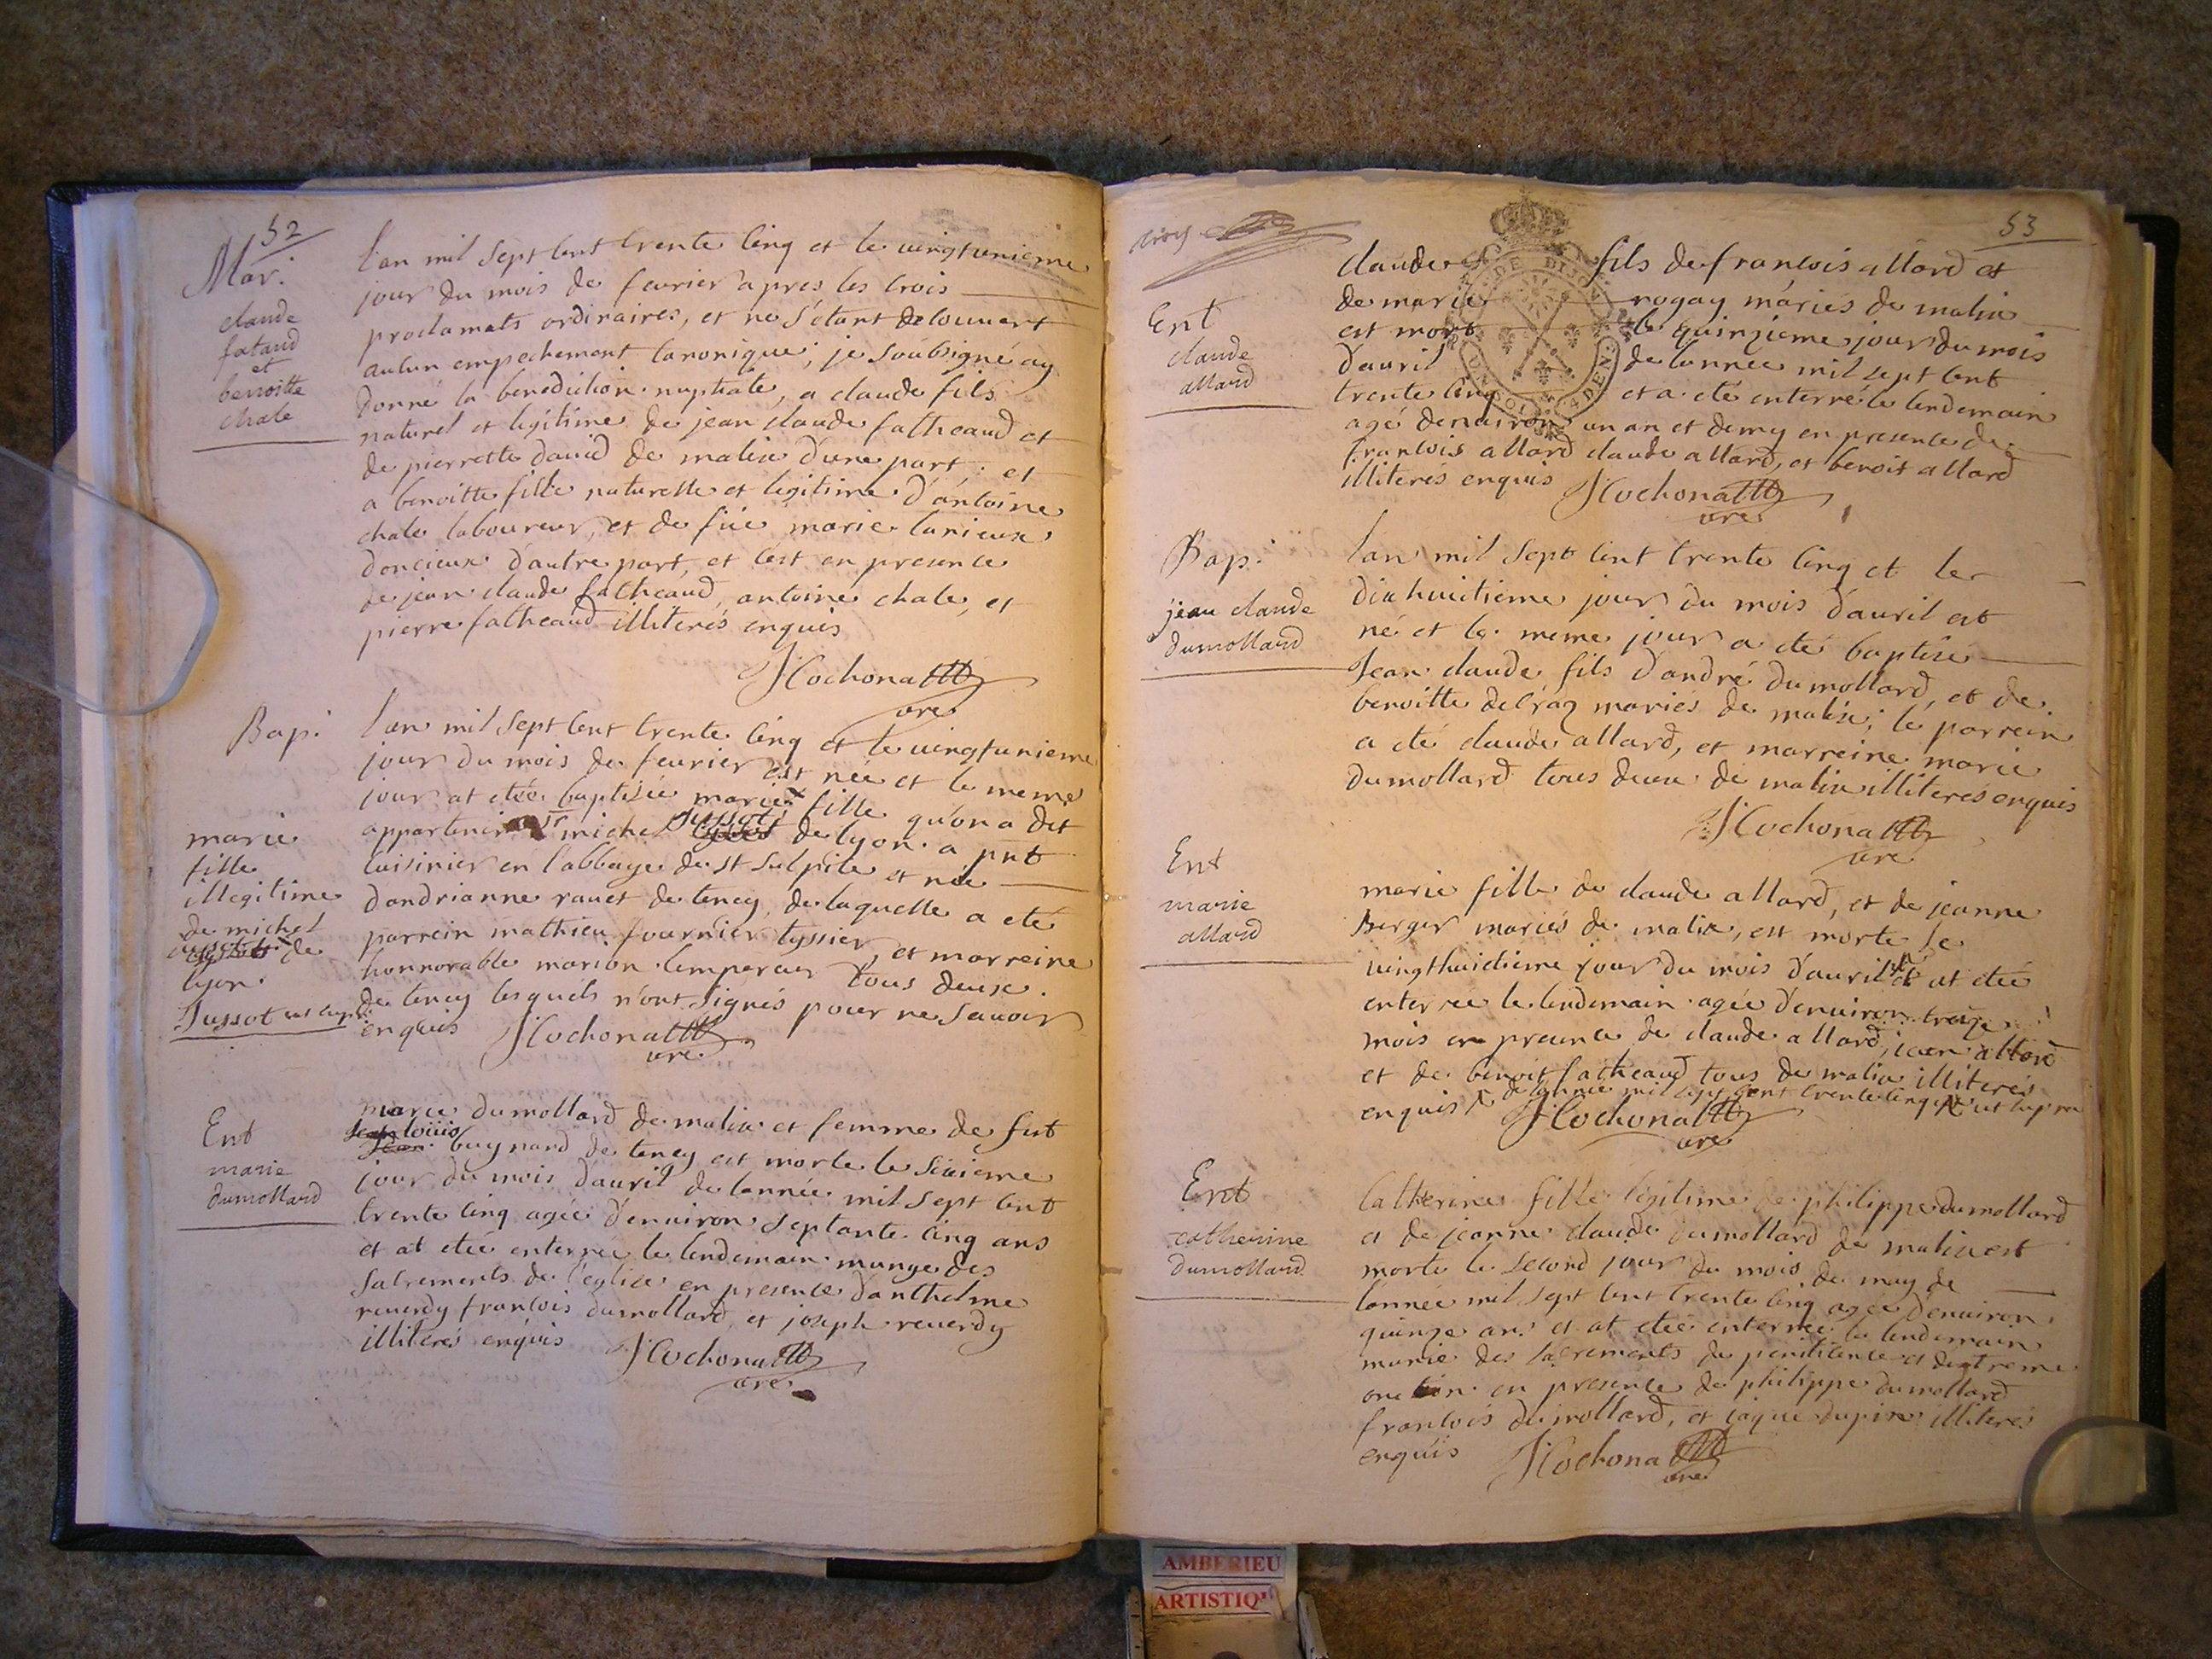 52
Mar.
claude
fataud
et
benoitte
chale
l'an mil sept cent trente cinq et le vingtunieme
jour du mois de fevrier apres les trois
proclamats ordinaires, et ne s'étant decouvert
aucun empechement canonique, je soubsigné ay
donné la benediction nuptiale, a claude fils
naturel et légitime de jean claude fatheaud et
de pierrette david de malix d'une part; et
a benoitte fille naturelle et legitime d'antoine
chale laboureur, et de füe marie
doncieux d'autre part, et c'est en presence
de jean claude fatheaud, antoine chale, et
pierre fatheaud illiterés enquis
JCochonat
cure
Bap.
marie
fille
illegitime
de michel
de
lyon.
Jussot ut supr
l'an mil sept cent trente cinq et le vingtunieme
jour du mois de fevrier est née et le meme
jour at etée baptisée marie fille qu'on a dit
appartenir a michel jussot de lyon a pnt
cuisinier en l'abbaye de st sulpice et née
d'andrianne ravet de tency, de laquelle a eté
parrein mathieu fournier tyssier, et marreine
honnorable marion lempereur tous deux
de tency lesquels n'ont signés pour ne savoir
enquis JCochonat
cure
Ent
marie
dumollard
marie dumollard de malix et femme de fut
jean loüis buynard de tency est morte le sixieme
jour du mois d'avril de l'année mil sept cent
trente cinq agée d'environ septante cinq ans
et at etée enterrée le lendemain munye des
sacrements de l'eglise en presence d'anthelme
reverdy françois dumollard, et joseph reverdy
illiterés enquis JCochonat
cure
53
Ent
claude
allard
claude fils de françois allard et
de marie rogay mariés de malix
est mort le quinzieme jour du mois
d'avril de l'année mil sept cent
trente cinq et a eté enterré le lendemain
agé d'environ un an et demy en presence de
françois allard claude allard, et benoit allard
illiterés enquis JCochonat
cure
Bap.
jean claude
dumollard
l'an mil sept cent trente cinq et le
dixhuitieme jour du mois d'avril est
né et le meme jour a eté baptisé
Jean claude fils d'andré dumollard, et de
benoitte mariés de malix; le parrein
a eté claude allard, et marreine marie
dumollard tous deux de malix illiteres enquis
JCochonat
cure
Ent
marie
allard
marie fille de claude allard, et de jeanne
Berger mariés de malix, est morte le
vingthuitieme jour du mois d'avril et at etée
enterrée le lendemain agée d'environ treize
mois en presence de claude allard, jean allard
et de benoit fatheaud tous de malix illiterés
enquis de l'année mil sept cent trente cinq ut supra
JCochonat
cure
Ent
catherine
dumollard
Catherine fille légitime de philippe dumollard
et de jeanne claude dumollard de malix est
morte le second jour du mois de may de
l'année mil sept cent trente cinq agée d'environ
quinze ans et at etée enterrée le lendemain
munie des sacrements de penitence et d'extreme
onction en presence de philippe dumollard
françois dumollard, et jaque dupin illiterés
enquis JCochonat
cure
AMBERIEU
ARTISTIQ